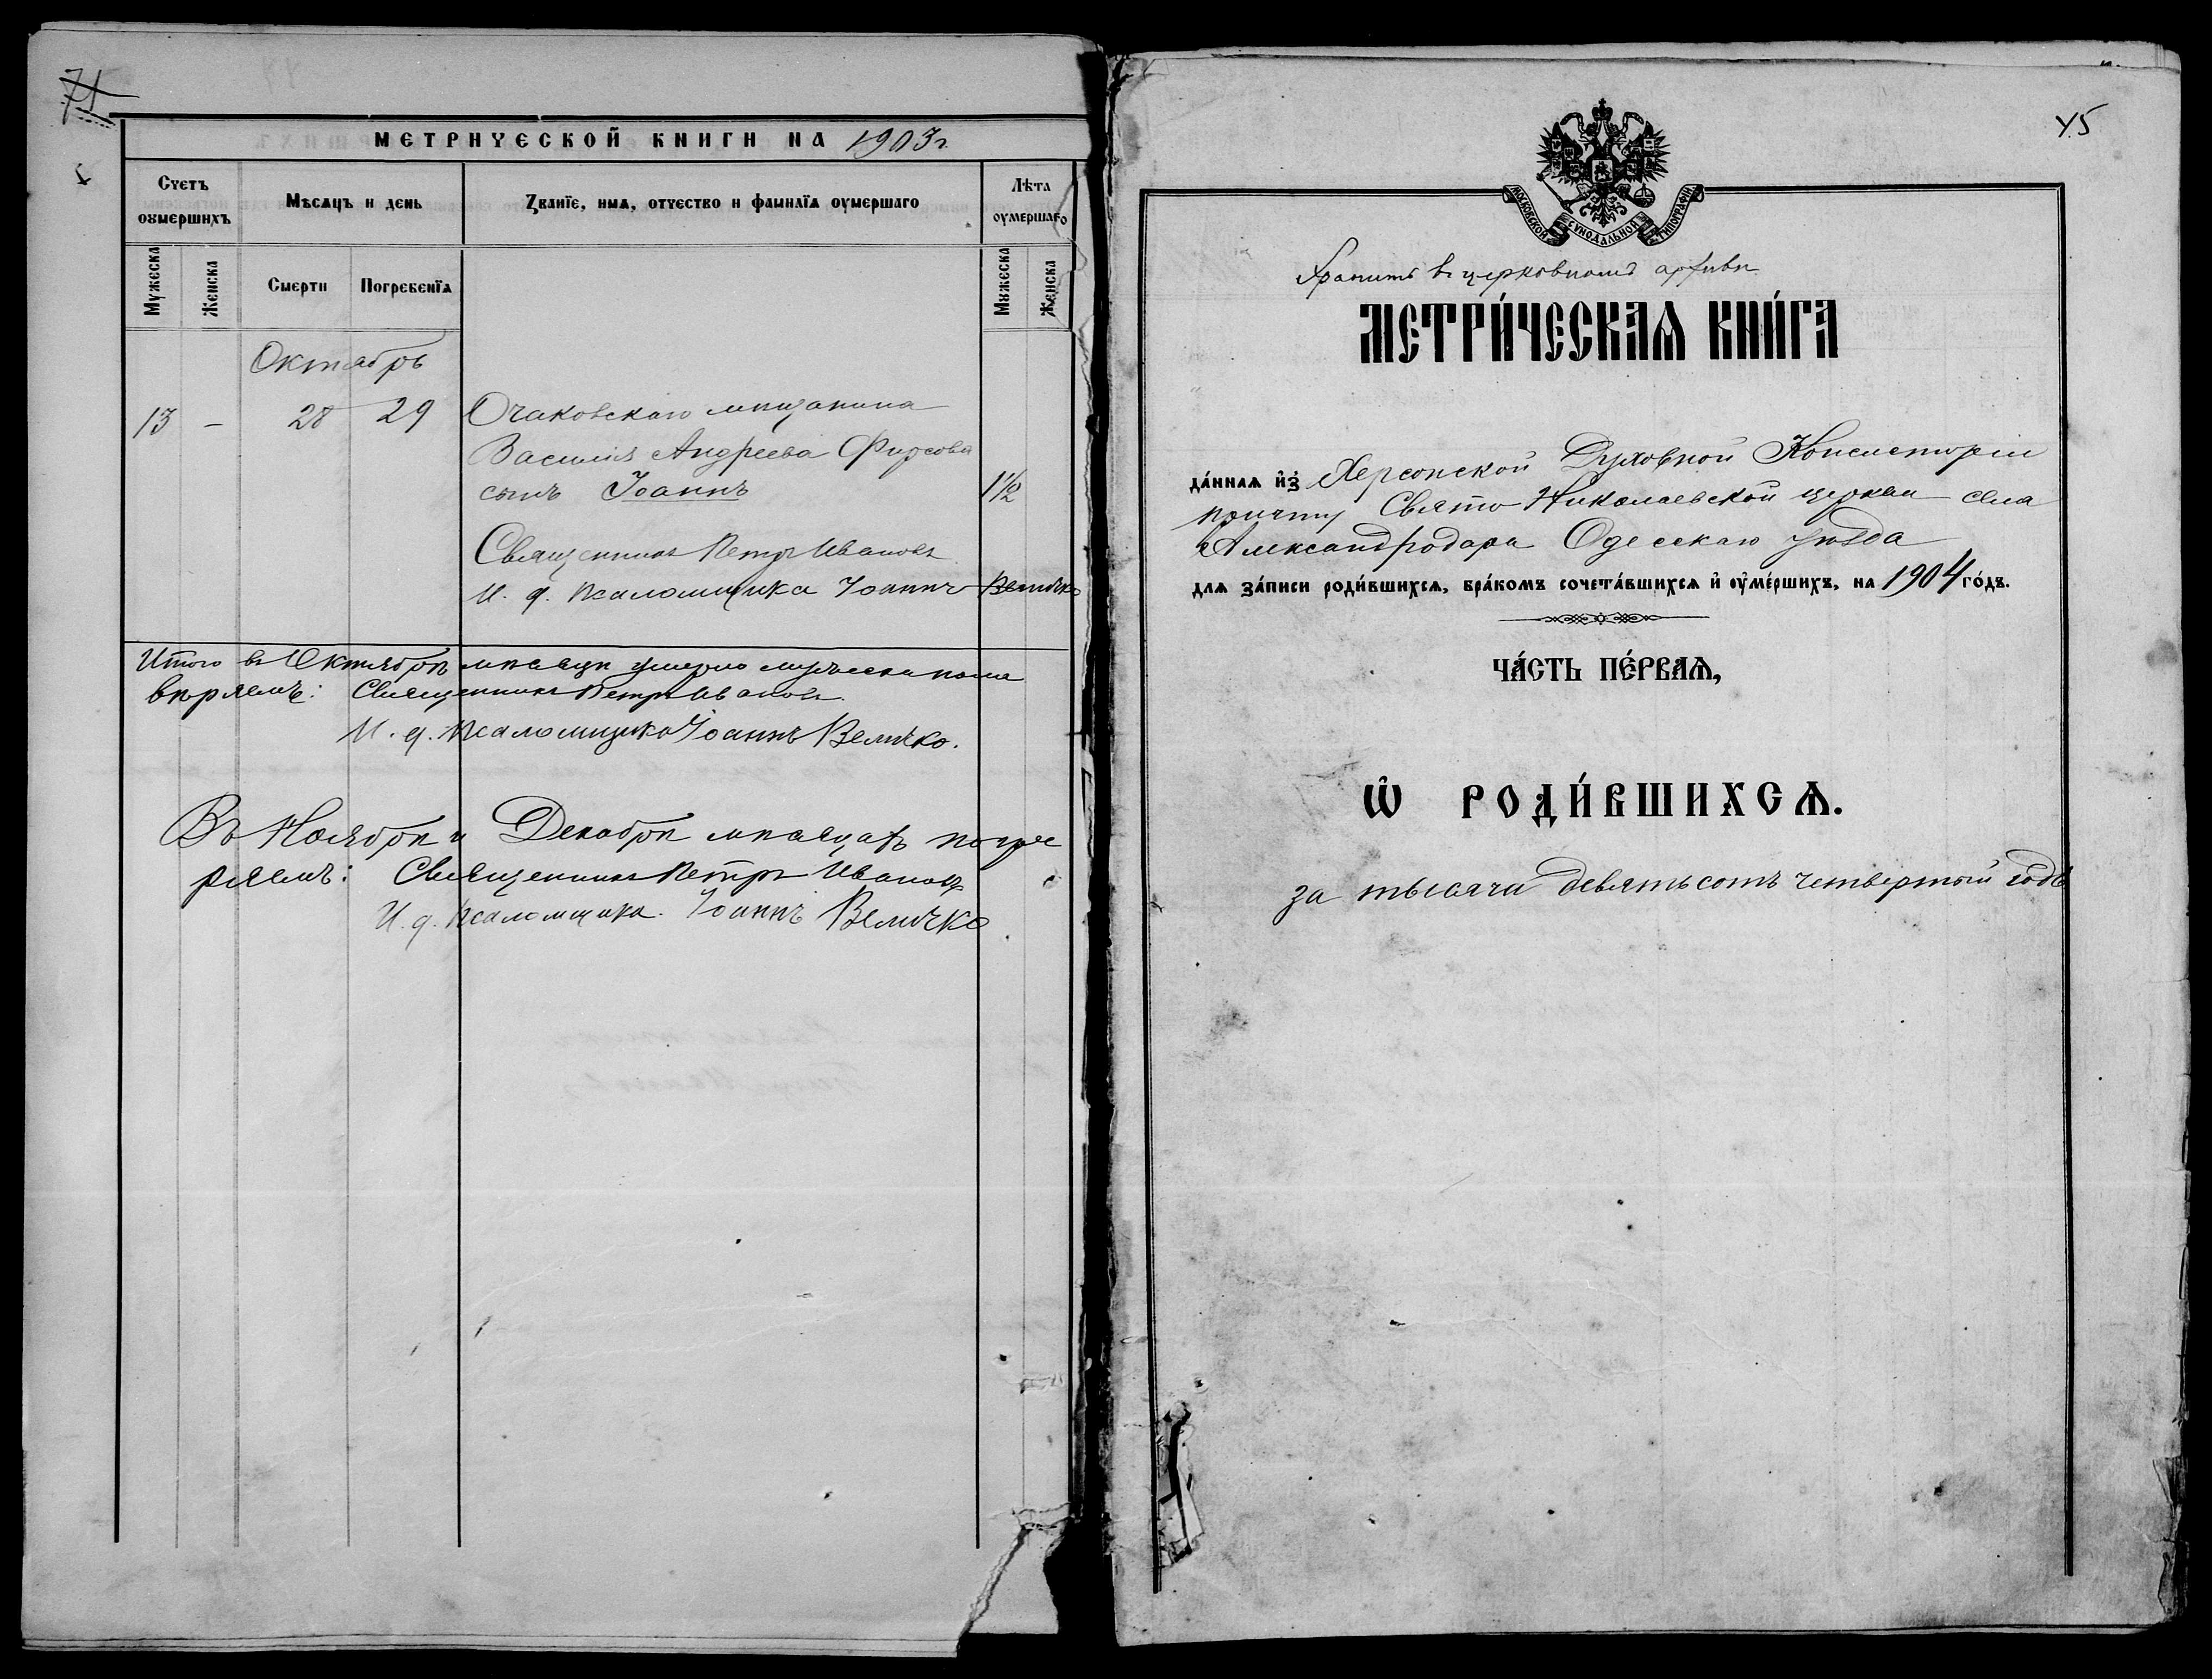 МЕТРИЧЕСКОЙ КНИГИ НА 1903 г.
Счетъ оумершихъ
Мѣсяцъ и день
Званїе, имя, отчество и фамилїя оумершаго
Лѣта оумершаго
Мужеска
Женска
Смерти
Погребенїя
Мужеска
Женска
Октябрь
13 – 28 29 Очаковскаго мѣщанина
Василія Андреева Фирсова
сынъ Іоаннъ 1½
Священникъ Петръ Ивановъ
И. д. псаломщика Іоаннъ Величко
Итого въ Октябрѣ мѣсяцѣ умерло мужеска пола
Священникъ Петръ Ивановъ
И. д. псаломщика Іоаннъ Величко.
Въ Ноябрѣ и Декабрѣ мѣсяцахъ
Священникъ Петръ Ивановъ
И. д. псаломщика Іоаннъ Величко
45
МОСКОВСКОЙ СѴНОДАЛЬНОЙ ТИПОГРАФІИ
Хранить въ церковномъ архивѣ
МЕТРИ́ЧЕСКАѦ КНИ́ГА
да́ннаѧ и҆з̾ Херсонской Духовной Консисторіи
причту Свято Николаевской церкви села
Александродара Одесскаго уѣзда
длѧ за́писи роди́вшихсѧ, бра́комъ сочета́вшихсѧ и҆ оу҆ме́ршихъ, на 1904 го́дъ.
ЧА́СТЬ ПЕ́РВАѦ,
Ѽ РОДИ́ВШИХСѦ.
за тысяча девятьсотъ четвертый годъ